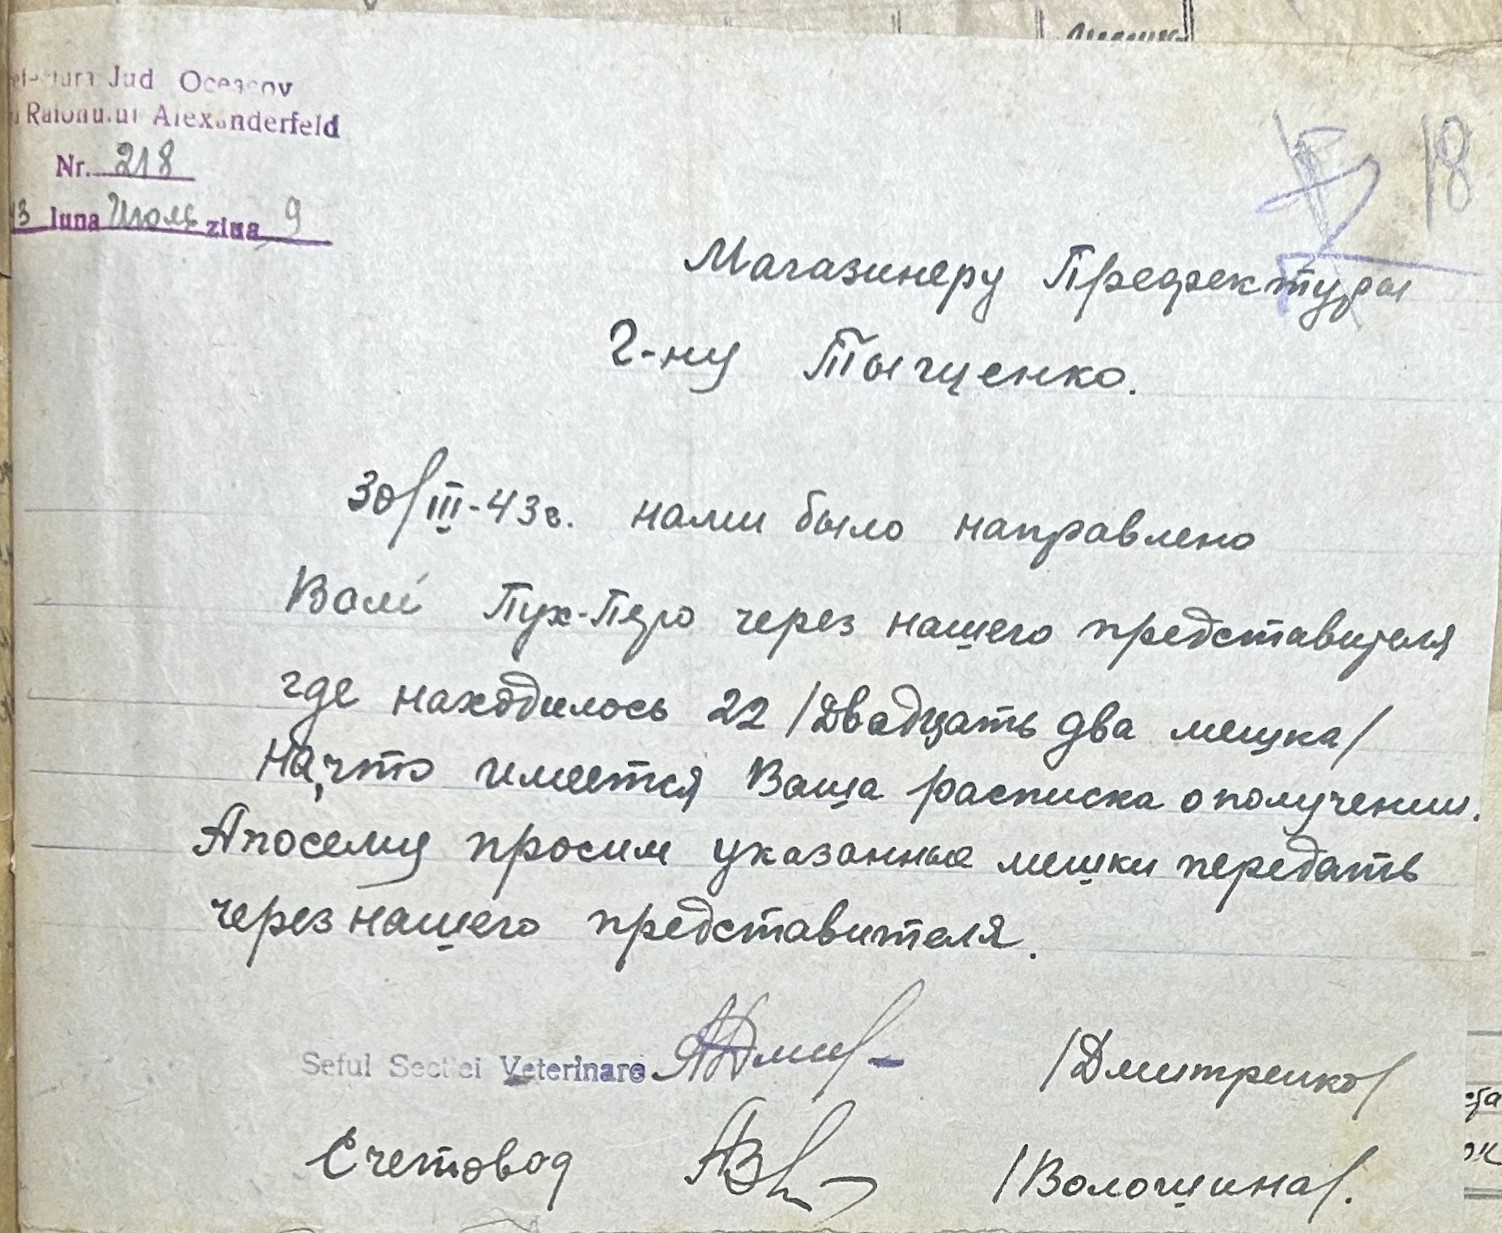 Jud Oceacov
Raionului Alexanderfeld
Nr. 218
43 luna Июль ziua 9
18
Магазинеру Префектуры
г-ну Тыщенко.
30/III-43г. нами было направлено
Вам Пух-Перо через нашего представителя
где находилось 22 /Двадцать два мешка/
на, что имеется Ваша расписка о получении.
А посему просим указанные мешки передать
через нашего представителя.
Seful Sectiei Veterinare /Дмитренко/
Счетовод /Волошина/.